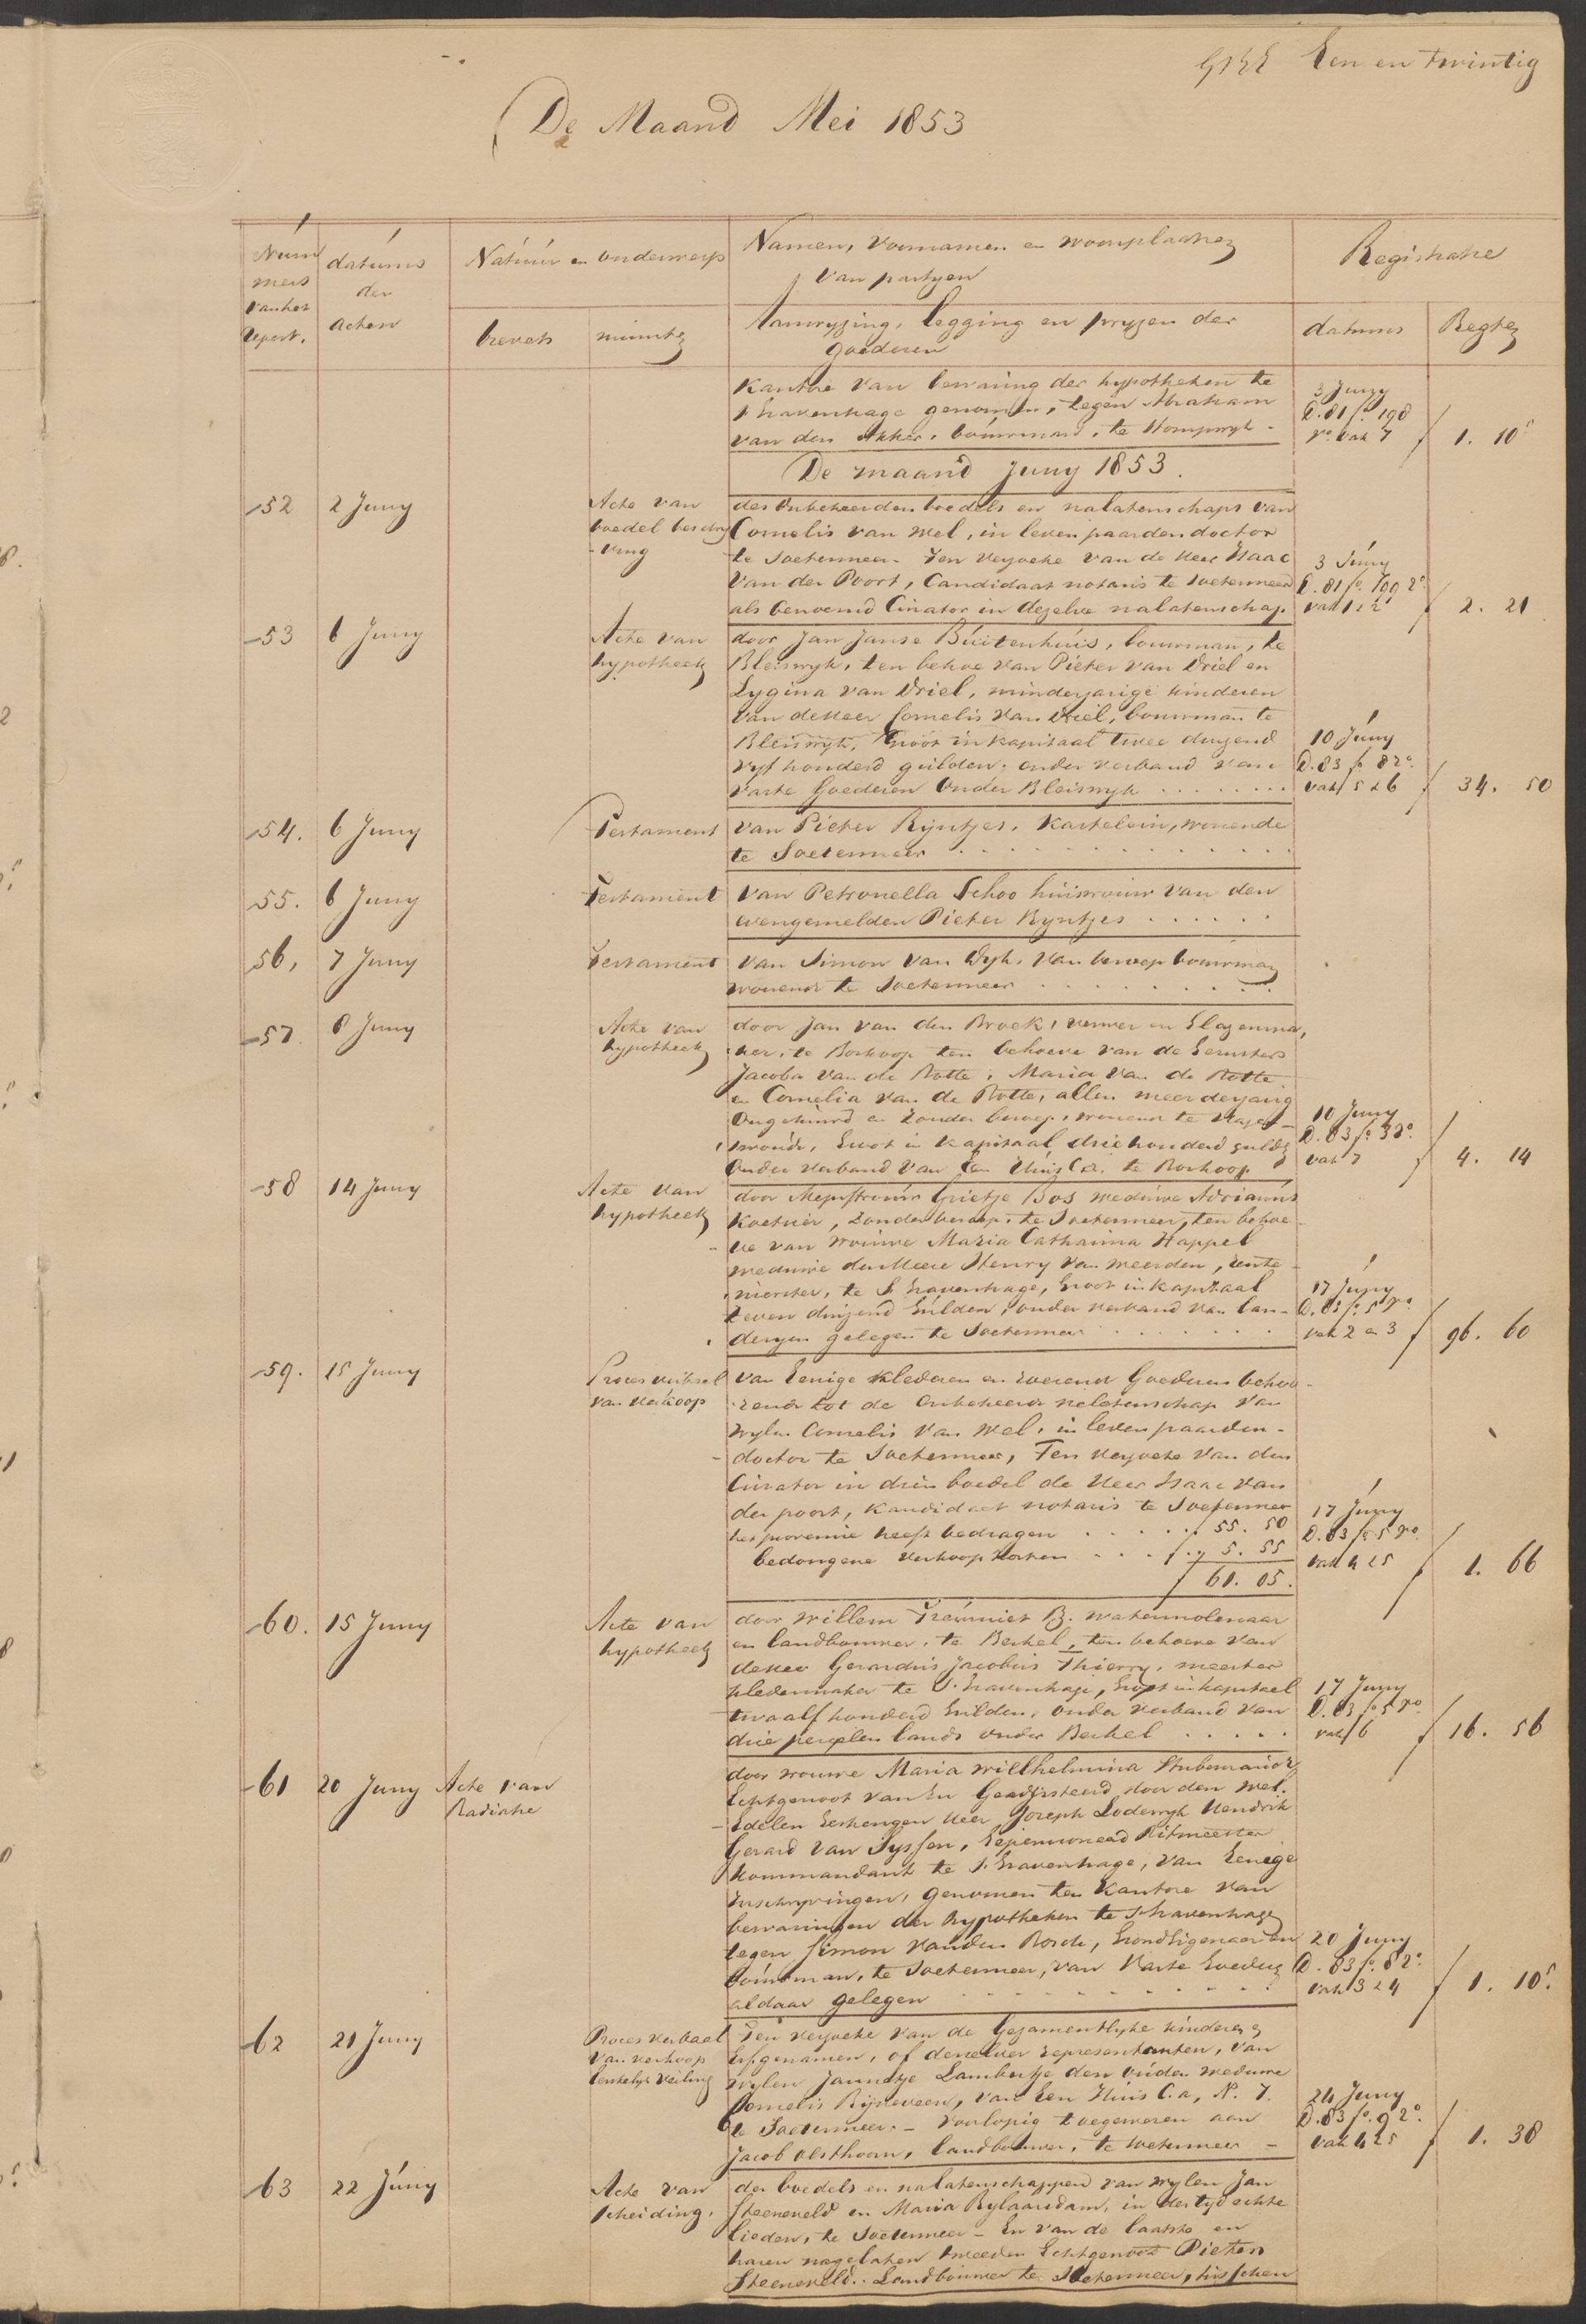 Een en twintig
De Maand Mei 1853
Nummers van het Repert.
datums der acten
Natuur en onderwerp
brevets
minuts
Namen, voornamen en woonplaatsen
van partyen
Aanwyzing, legging en pryzen der
goederen
Registratie
datums
Regten
Kantore van bewaring der hypotheken te
s Gravenhage genomen, tegen Abraham
van den Akker, bouwman, te
3 Juny
D. 81 fo 198
vo vak 7
f 1. 10⁵
De maand Juny 1853.
52
2 Juny
Acte van
boedel beschry
-ving
des onbeheerden boedels en nalatenschaps van
Cornelis van Wel, in leven paardendoctor
te Soetermeer. Ten verzoeke van de Heer Isaac
van der Poort, Candidaat notaris te Soetermeer
als benoemd Curator in dezelve nalatenschap
3 Juny
D. 81 fo. 199 ro
vak 1 & 2
f 2. 21
53
6 Juny
Acte van
hypotheek
door Jan Janse Buitenhuis, bouwman, te
Bleiswyk, ten behoe van Pieter van Driel en
Lygina van Driel, minderjarige kinderen
van de Heer Cornelis van Driel, bouwman te
Bleiswyk, groot in kapitaal twee duyzend
vyf honderd gulden, onder verband van
vaste Goederen onder Bleiswyk . . . . . . . .
10 Juny
D. 83 fo 3 ro.
vak 5 & 6
f 34. 50
54.
6 Juny
Testament
van Pieter Ryntjes, Kastelein, wonende
te Soetermeer . . . . . . . . . . . .
55.
6 Juny
Testament
van Petronella Schoo huisvrouw van den
evengemelden Pieter Ryntjes . . . . . .
56,
7 Juny
Testament
van Simon van Dyk, van beroep bouwman
wonend te Soetermeer . . . . . . . . .
57.
8 Juny
Acte van
hypotheek
door Jan van den Broek, verwer en Glazenma,
ker, te Boskoop ten behoeve van de
Jacoba van de Rotte, Maria van de Rotte
en Cornelia van de Rotte, allen meerderjarig
Ongehuwd en zonder beroep, wonend te Hazers-
woude, Groot in Kapitaal drie honderd guldn
Onder verband van Een Huis C.a. te Boskoop
10 Juny
D. 83 fo 3 ro.
vak 7
f 4. 14
58
14 Juny
Acte van
hypotheek
door Mejufvrouw Grietje Bos weduwe Adrianus
Koetsier, Zonder beroep, te Soetermeer, ten behoe-
ve van vrouwe Maria Catharina Happel
weduwe den Heere Henry van Meerden, rente-
nierster, te S Gravenhage, Groot in Kapitaal
zeven duizend Gulden, onder verband van lan-
deryen gelegen te Soetermeer . . . . . . .
17 Juny
D. 83 fo. 5 ro
vak 2 en 3
f 96. 60
59.
15 Juny
Proces verbaal
van verkoop
van Eenige klederen en roerend Goederen behoo-
rend tot de Onbeheerd nalatenschap van
wylen Cornelis van Wel, in leven paarden-
doctor te Soetermeer, Ten verzoeke van den
Curator in dien boedel de Heer Isaac van
der poort, Kandidaat notaris te Soetermeer
het provenue heeft bedragen . . . . . f 55. 50
bedongene verkoop Kosten . . . . „ 5. 55
f 61. 05.
17 Juny
D. 83 fo 5 ro.
vak 4 & 5
f 1. 66
60.
15 Juny
Acte van
hypotheek
door Willem B. watermolenaar
en landbouwer, te Berkel, ten behoeve van
de Heer Gerardus Jacobus Thierry, meester
kledermaker te S. Gravenhage, Groot in kapitaal
twaalf honderd Gulden, onder verband van
drie percelen lands onder Berkel . . . . .
17 Juny
D. 83 fo 5 ro.
vak 6
f 16. 56
61
20 Juny
Acte van
Radiatie
door vrouwe Maria Willhelmina
Echtgenoot van En Geadsisteerd door den Wel-
Edelen Gestrengen Heer Joseph Lodewyk Hendrik
Gerard van Tyssen, Gepensioneerd Ritmeester
kommandant te S. Gravenhage, van Eenige
Inschryvingen, genomen ten Kantore van
bewaringen der hypotheken te s Gravenhage
tegen Simon van den Bosch, Grond Eigenaar en
bouwman, te Soetermeer, van Vaste Goederen
aldaar gelegen . . . . . . . . . . .
20 Juny
D. 83 fo. 8 ro.
vak 3 & 4
f 1. 10⁵
62
21 Juny
Proces verbaal
van verkoop
Eerstelyk veiling
Ten verzoeke van de Gezamentlyke kinderen
Erfgenamen, of derzelver representanten, van
wylen Jannetje Lambertje den ouden weduwe
Cornelis Ryneveen, van Een Huis C.a, No. 7.
te Soetermeer. - Voorlopig toegewezen aan
Jacob Olsthoorn, landbouwer, te Soetermeer -
24 Juny
D. 83 fo. 9 ro.
vak 4 & 5
f 1. 38
63
22 Juny
Acte van
scheiding.
der boedels en nalatenschappen van wylen Jan
Steeneveld en Maria Bylaardam, in der tyd echte
lieden, te Soetermeer - En van de laatste en
haren nagelaten tweeden Echtgenoot Pieter
Steeneveld. Landbouwer te Soetermeer, tusschen